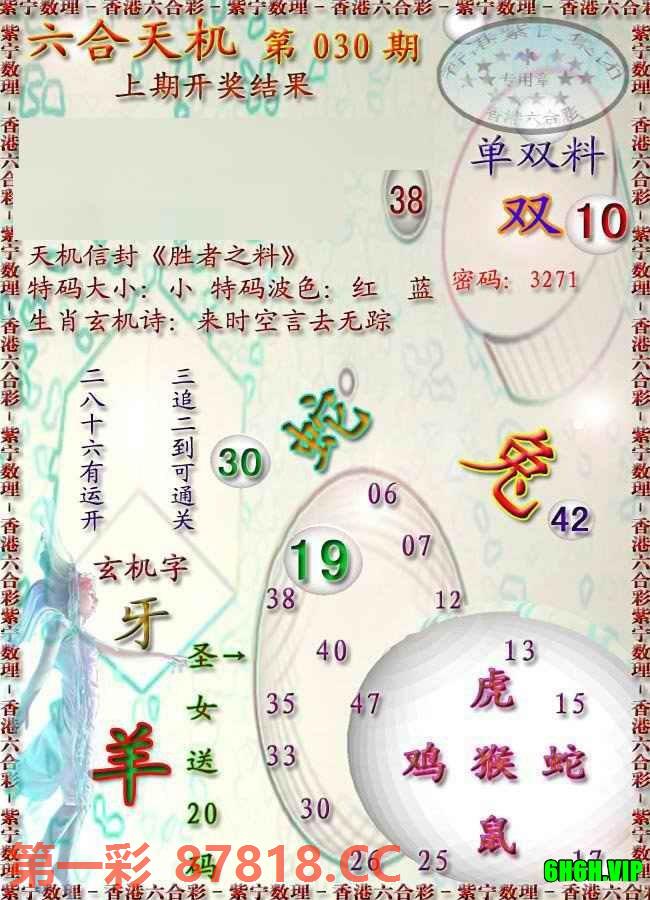 紫宁数理－香港六合彩－紫宁数理－香港六合彩－紫宁数理－香港六合彩
六合天机 第 030 期
上期开奖结果
专用章
香港六合彩
单双料
38
双 10
天机信封《胜者之料》
特码大小：小 特码波色：红 蓝
密码：3271
生肖玄机诗：来时空言去无踪
二八十六有运开
三追二到可通关
蛇
30
兔
42
06
19
07
38
12
玄机字
牙
圣女送20码
→
40
13
35
47
虎
15
羊
33
鸡 猴 蛇
30
鼠
26
25
17
第一彩 87818.CC
6H6H.VIP
紫宁数理－香港六合彩－紫宁数理－香港六合彩－紫宁数理－香港六合彩